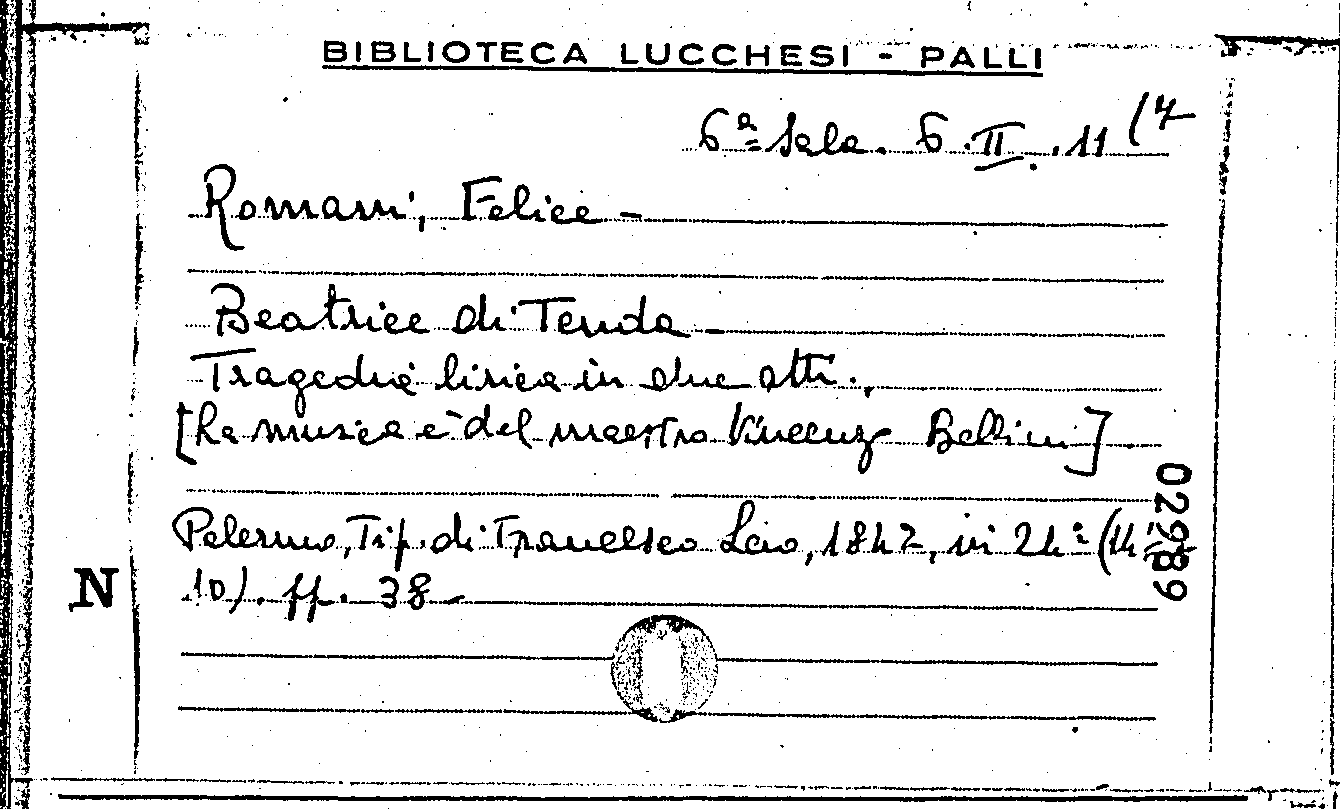 BIBLIOTECA LUCCHESI - PALLI
6ª Sala. 6.II.11 (7
Romani, Felice -
Beatrice di Tenda -
Tragedia lirica in due atti.,
[La musica è del maestro Vincenzo Bellini]
Palermo, Tip. di Francesco Lao, 1847, in 24° (14 x
10). pp. 38 -
02989
N